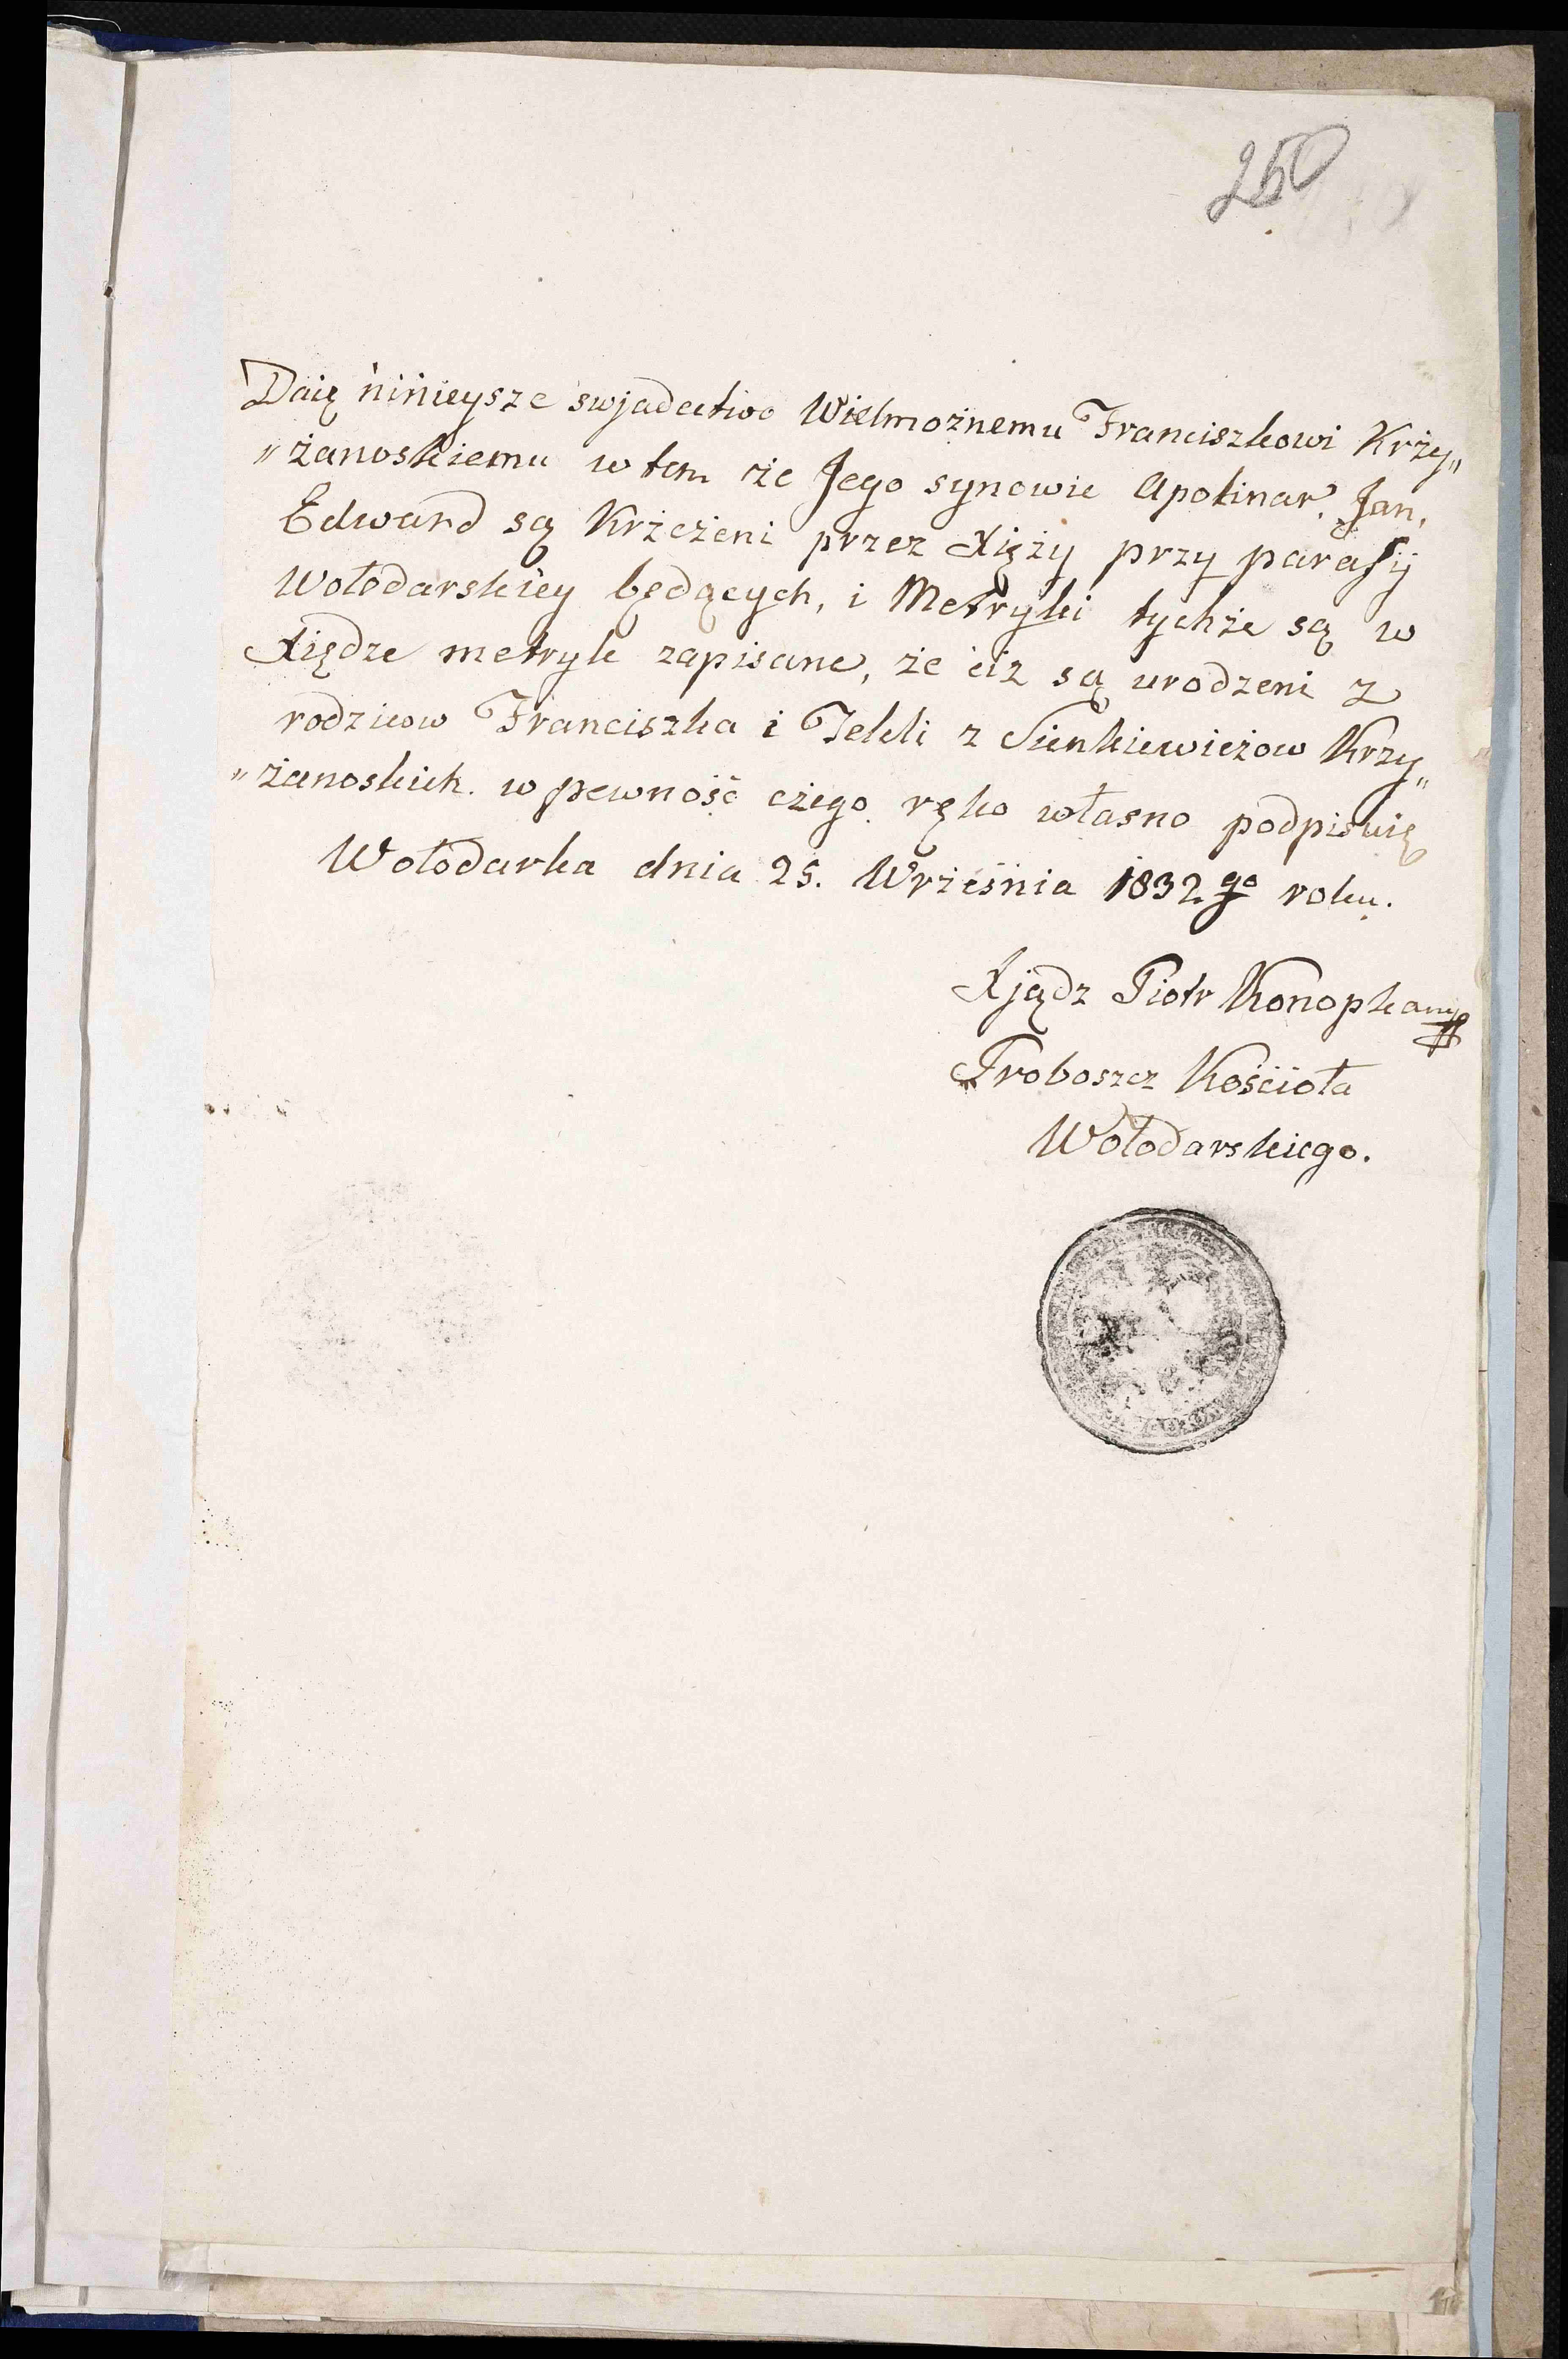 250
Daię ninieysze swjadectwo Wielmożnemu Franciszkowi Krży„
„żanoskiemu w tem że Jego synowie Apolinar, Jan,
Edward są Krżczeni przez Xięży przy parafij
Wołodarskiey będących, i Metryki tychże są w
Xiędze metryk zapisane, że ciż są urodzeni z
rodzicow Franciszka i Tekli z Sienkiewiczow Krzy„
„żanoskich. w pewność czego ręko własno podpisuię
Wołodarka dnia 25. Września 1832go roku.
Xjądz Piotr
Proboszcz Kościoła
Wołodarskiego.